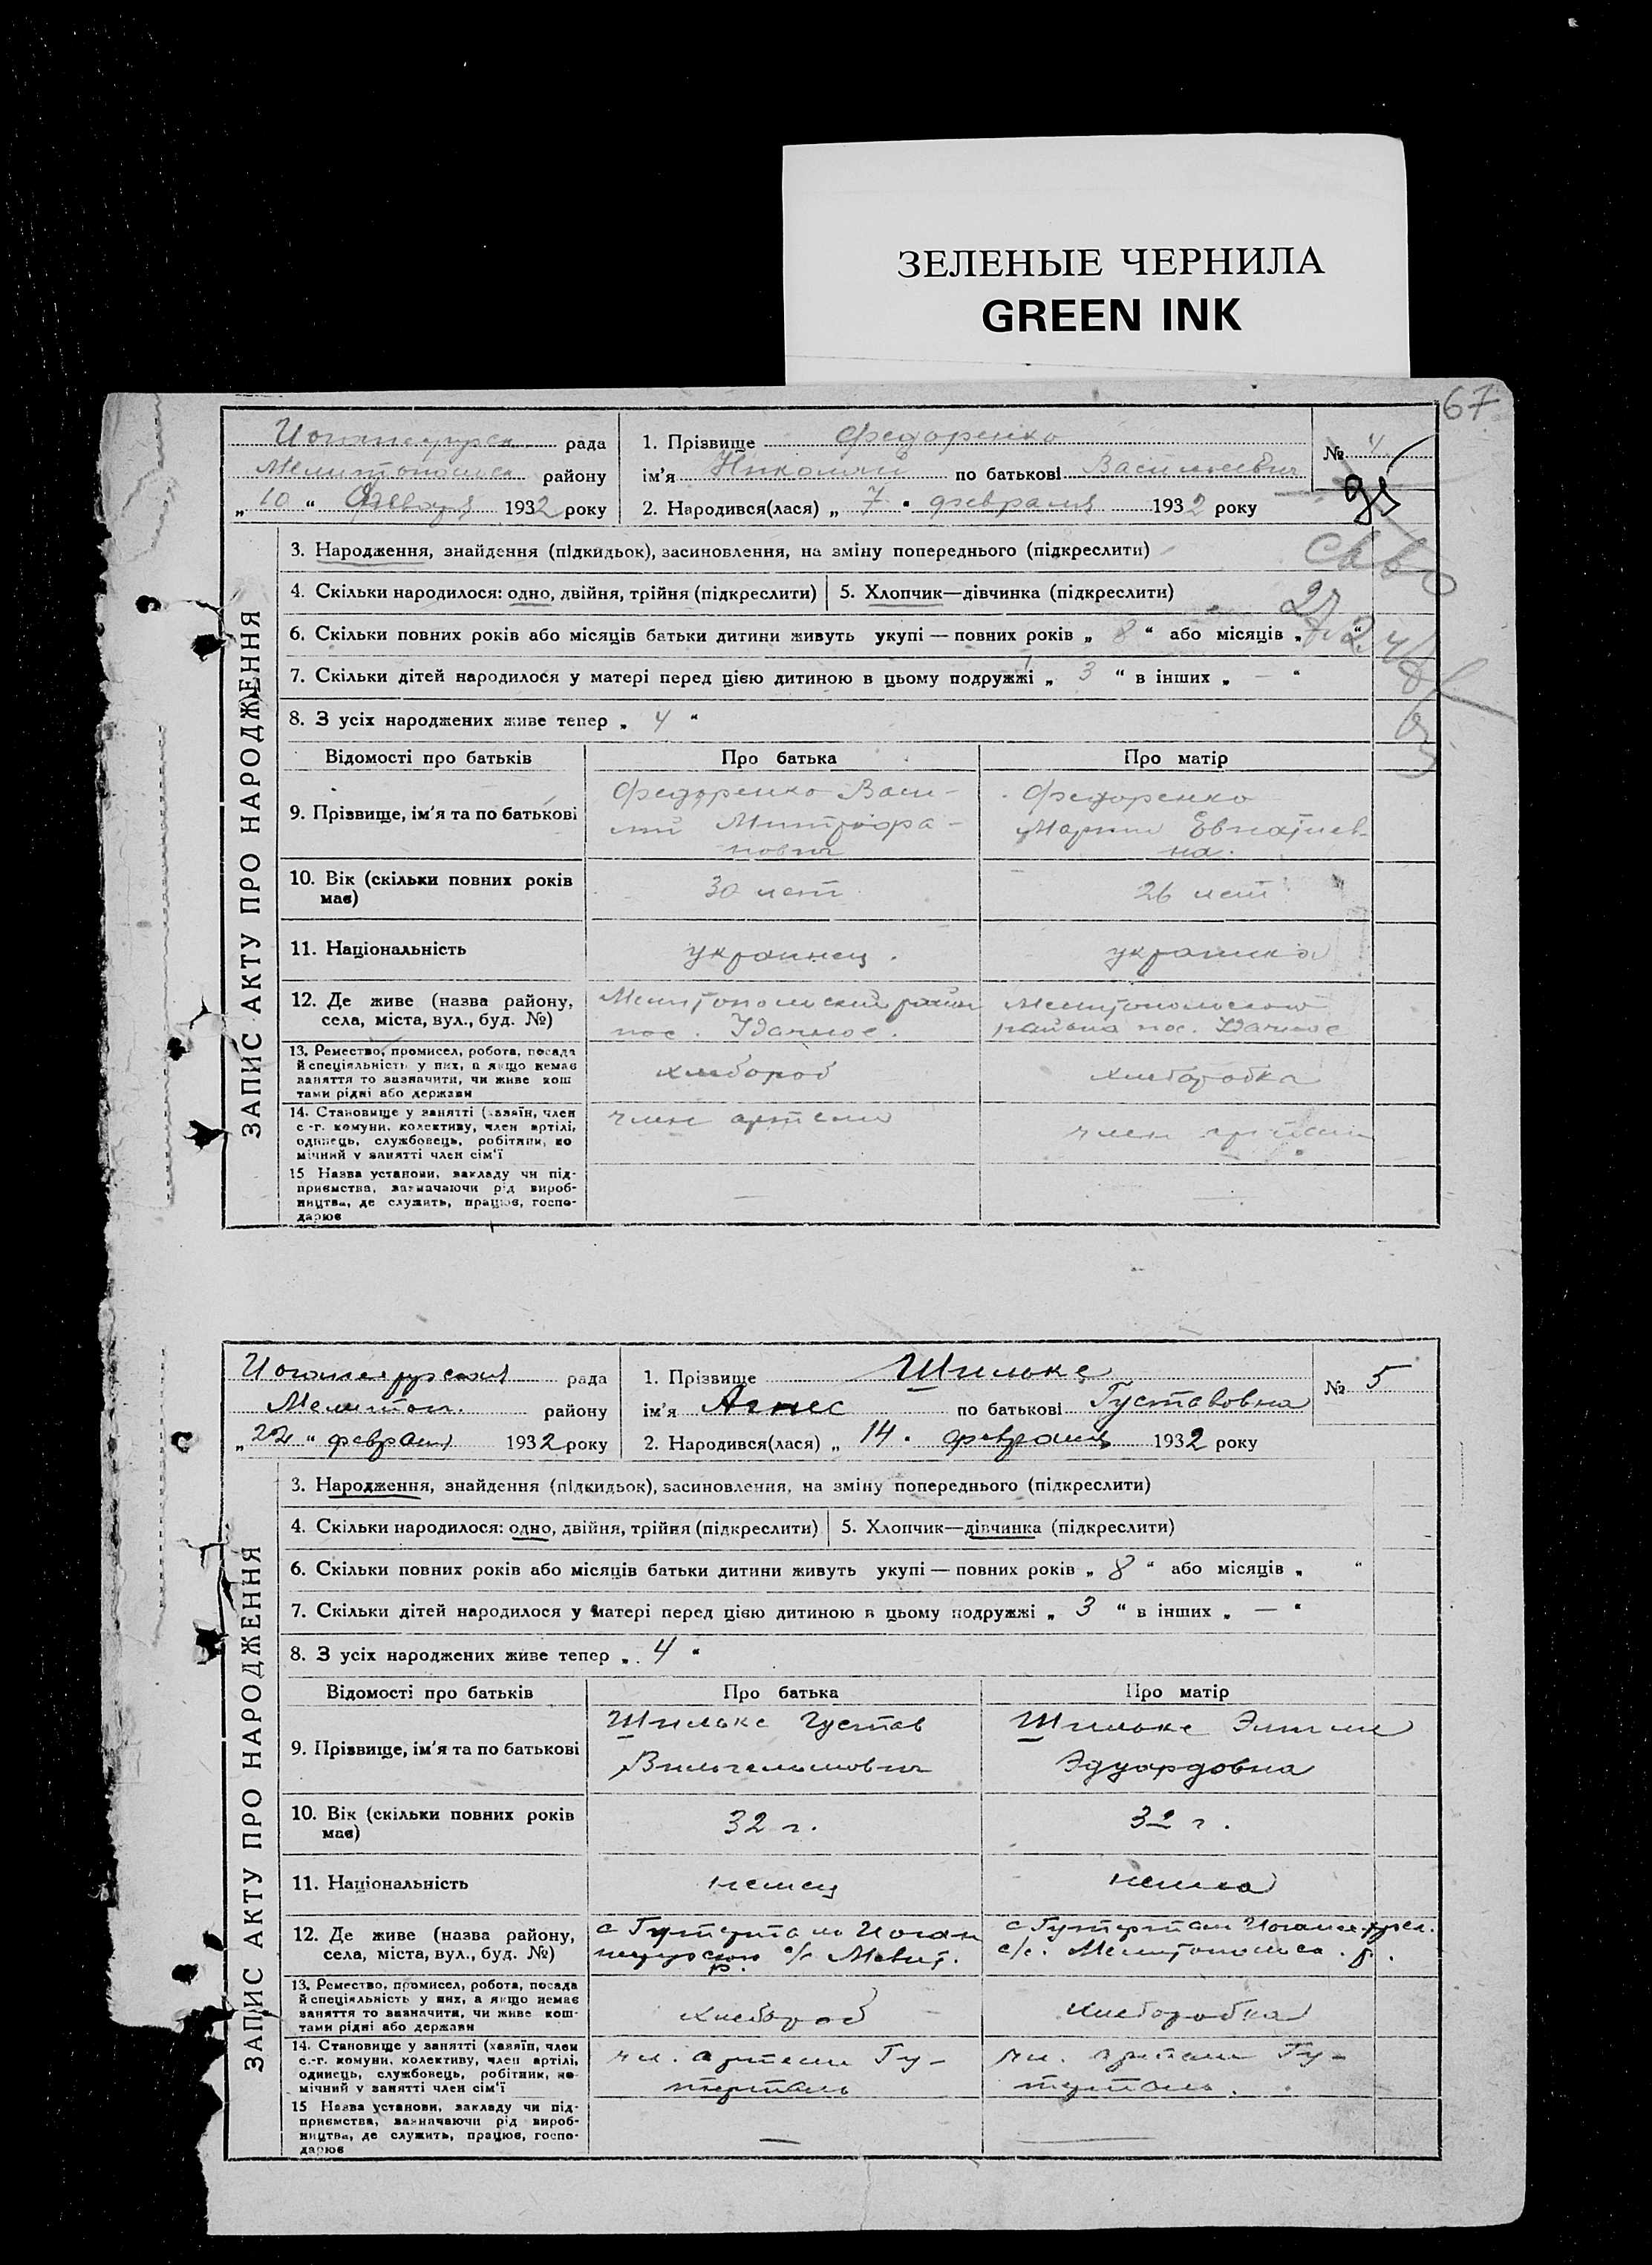 ЗЕЛЕНЫЕ ЧЕРНИЛА
GREEN INK
67
рада
1. Прізвище Федоренко
№ 4
району
ім'я Николай по батькові Васильевич
95
„ 10 “ февраля 1932 року
2. Народився(лася) „ 7 “ февраля 1932 року
3. Народження, знайдення (підкидьок), засиновлення, на зміну попереднього (підкреслити)
4. Скільки народилося: одно, двійня, трійня (підкреслити)
5. Хлопчик—дівчинка (підкреслити)
6. Скільки повних років або місяців батьки дитини живуть укупі — повних років „ 8 “ або місяців „ “
7. Скільки дітей народилося у матері перед цією дитиною в цьому подружжі „ 3 “ в інших „ — “
8. З усіх народжених живе тепер „ 4 “
Відомості про батьків
Про батька
Про матір
9. Прізвище, ім'я та по батькові
Федоренко Васи-
лий Митрофа-
нович
Федоренко
Мария
на.
10. Вік (скільки повних років
має)
30 лет
26 лет
11. Національність
украинец.
украинка
12. Де живе (назва району,
села, міста, вул., буд. №)
Мелитопольский район
пос. Удачное.
Мелитопольского
района пос. Удачное
13. Ремество, промисел, робота, посада
й спеціяльність у них, а якщо немає
заняття то зазначити, чи живе кош
тами рідні або держави
хлебороб
хлеборобка
14. Становище у занятті (хазяїн, член
с-г. комуни, колективу, член артілі,
одинець, службовець, робітник, по
мічний у занятті член сім'ї
член артели
член артели
15 Назва установи, закладу чи під-
приємства, зазначаючи рід вироб-
ництва, де служить, працює, госпо-
дарює
ЗАПИС АКТУ ПРО НАРОДЖЕННЯ
рада
1. Прізвище Шильке
№ 5
Мелитоп. району
ім'я Агнес по батькові Густавовна
„ 22 “ февраля 1932 року
2. Народився(лася) „ 14 “ февраля 1932 року
3. Народження, знайдення (підкидьок), засиновлення, на зміну попереднього (підкреслити)
4. Скільки народилося: одно, двійня, трійня (підкреслити)
5. Хлопчик—дівчинка (підкреслити)
6. Скільки повних років або місяців батьки дитини живуть укупі — повних років „ 8 “ або місяців „ “
7. Скільки дітей народилося у матері перед цією дитиною в цьому подружжі „ 3 “ в інших „ — “
8. З усіх народжених живе тепер „ 4 “
Відомості про батьків
Про батька
Про матір
9. Прізвище, ім'я та по батькові
Шильке Густав
Вильгельмович
Шильке
Эдуардовна
10. Вік (скільки повних років
має)
32 г.
32 г.
11. Національність
немец
немка
12. Де живе (назва району,
села, міста, вул., буд. №)
с Гутерталь
с/с
с Гутерталь
с/с. р.
13. Ремество, промисел, робота, посада
й спеціяльність у них, а якщо немає
заняття то зазначити, чи живе кош-
тами рідні або держави
хлебороб
хлеборобка
14. Становище у занятті (хазяїн, член
с.-г. комуни, колективу, член артілі,
одинець, службовець, робітник, по-
мічний у занятті член сім'ї
чл. артели Гу-
терталь
чл. артели Гу-
терталь.
15 Назва установи, закладу чи під-
приємства, зазначаючи рід вироб-
ництва, де служить, працює, госпо-
дарює
—
—
ЗАПИС АКТУ ПРО НАРОДЖЕННЯ